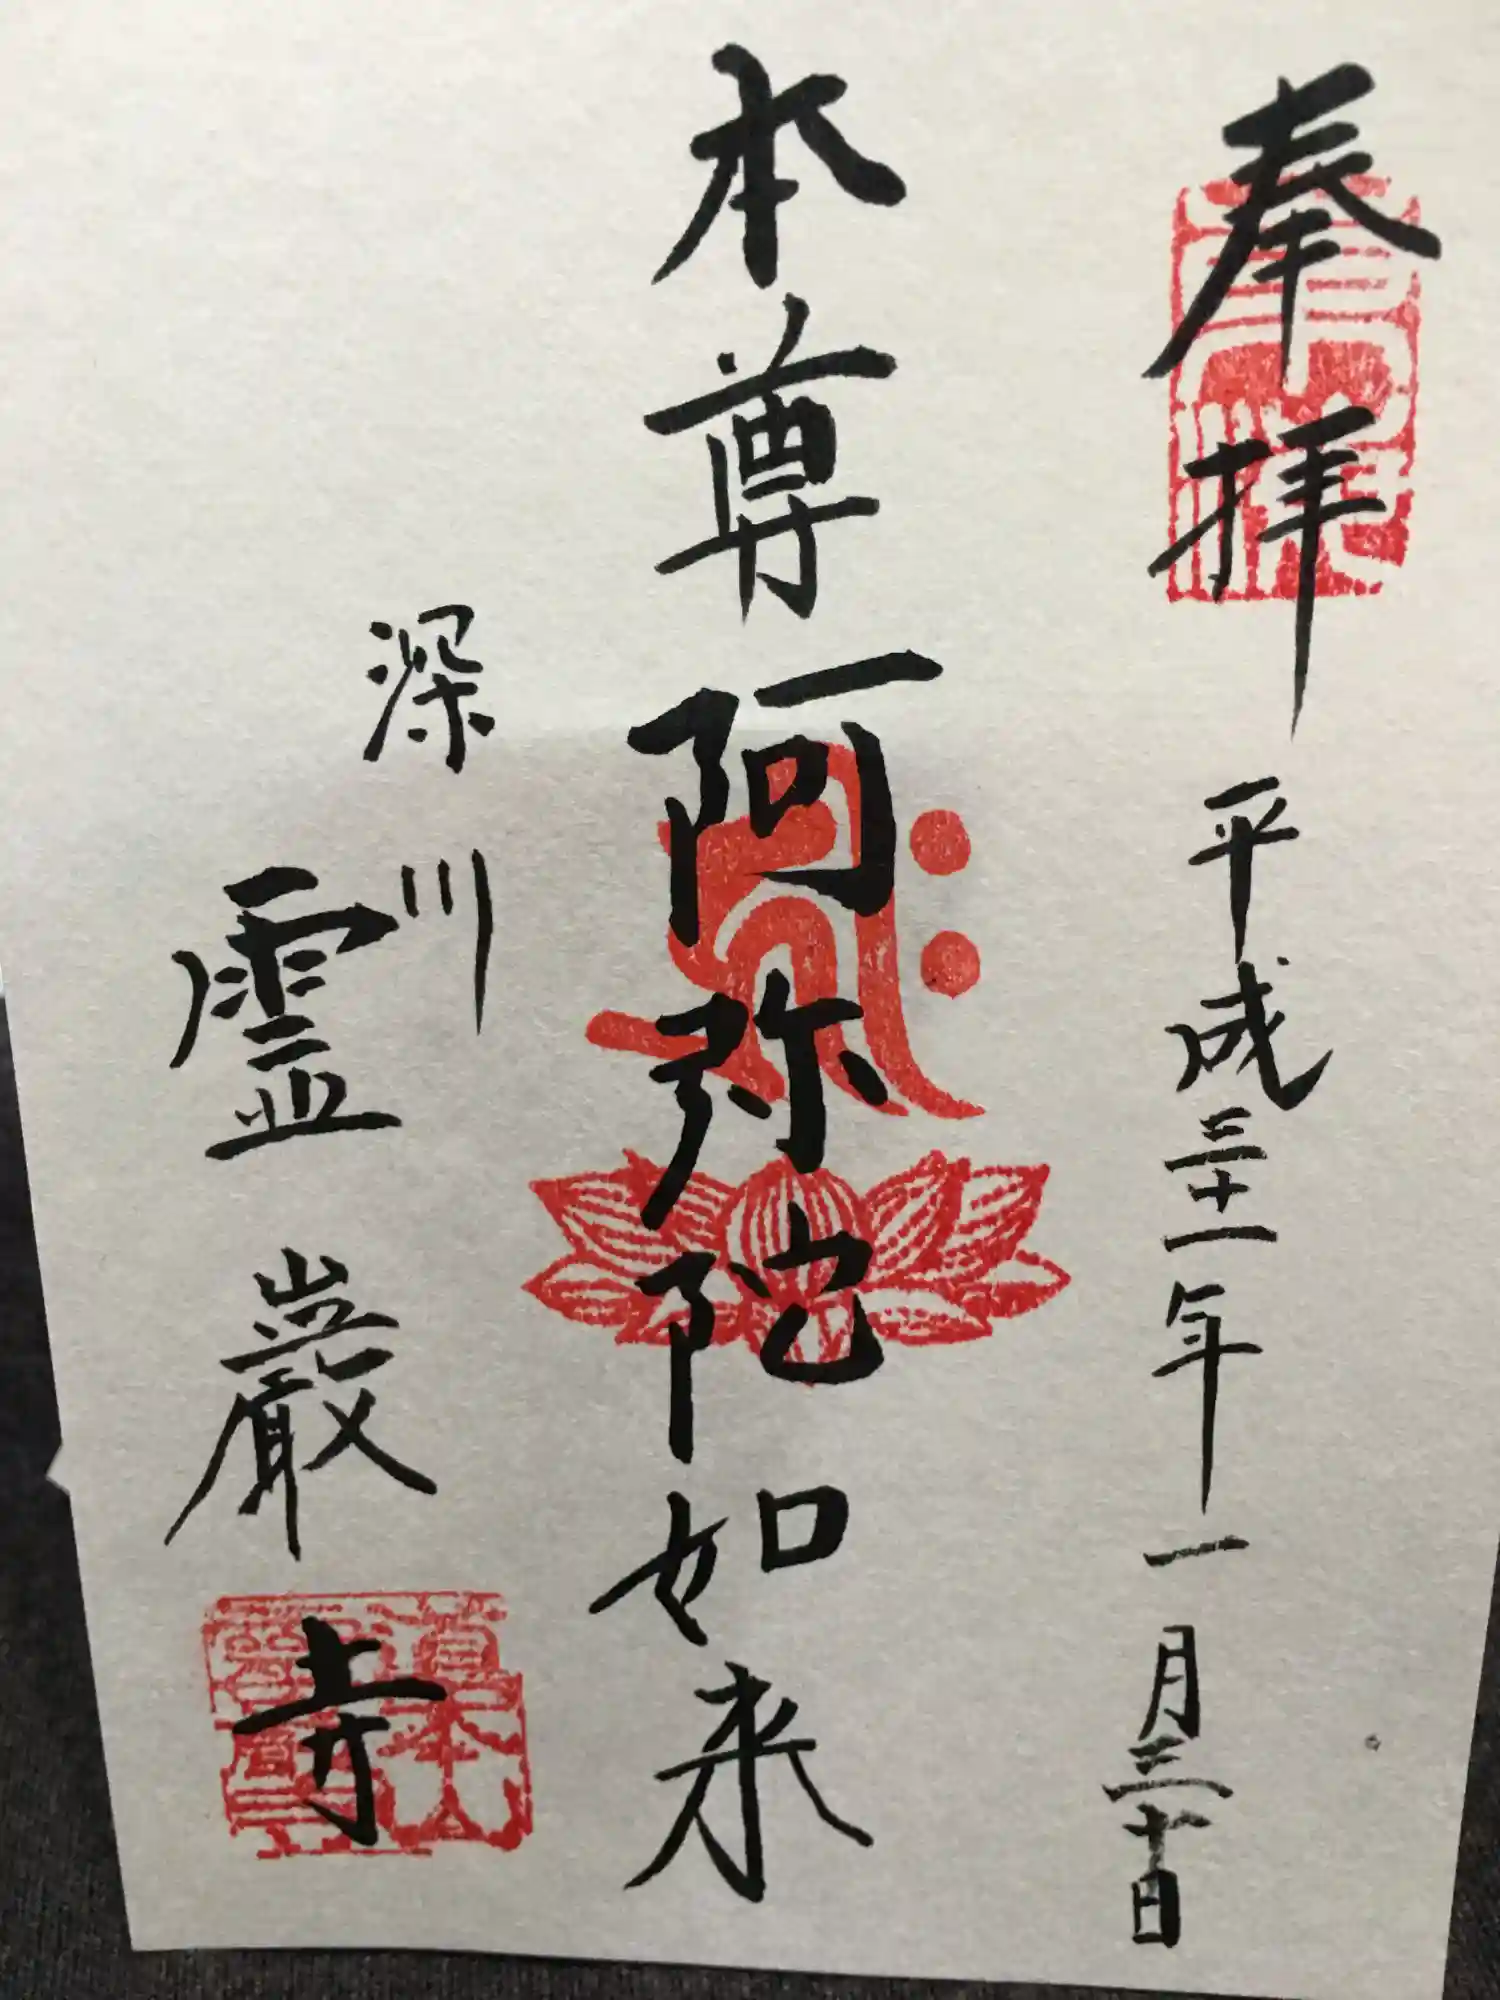 奉拝
平成三十一年一月三十日
本尊阿弥陀如来
深川
霊巌寺